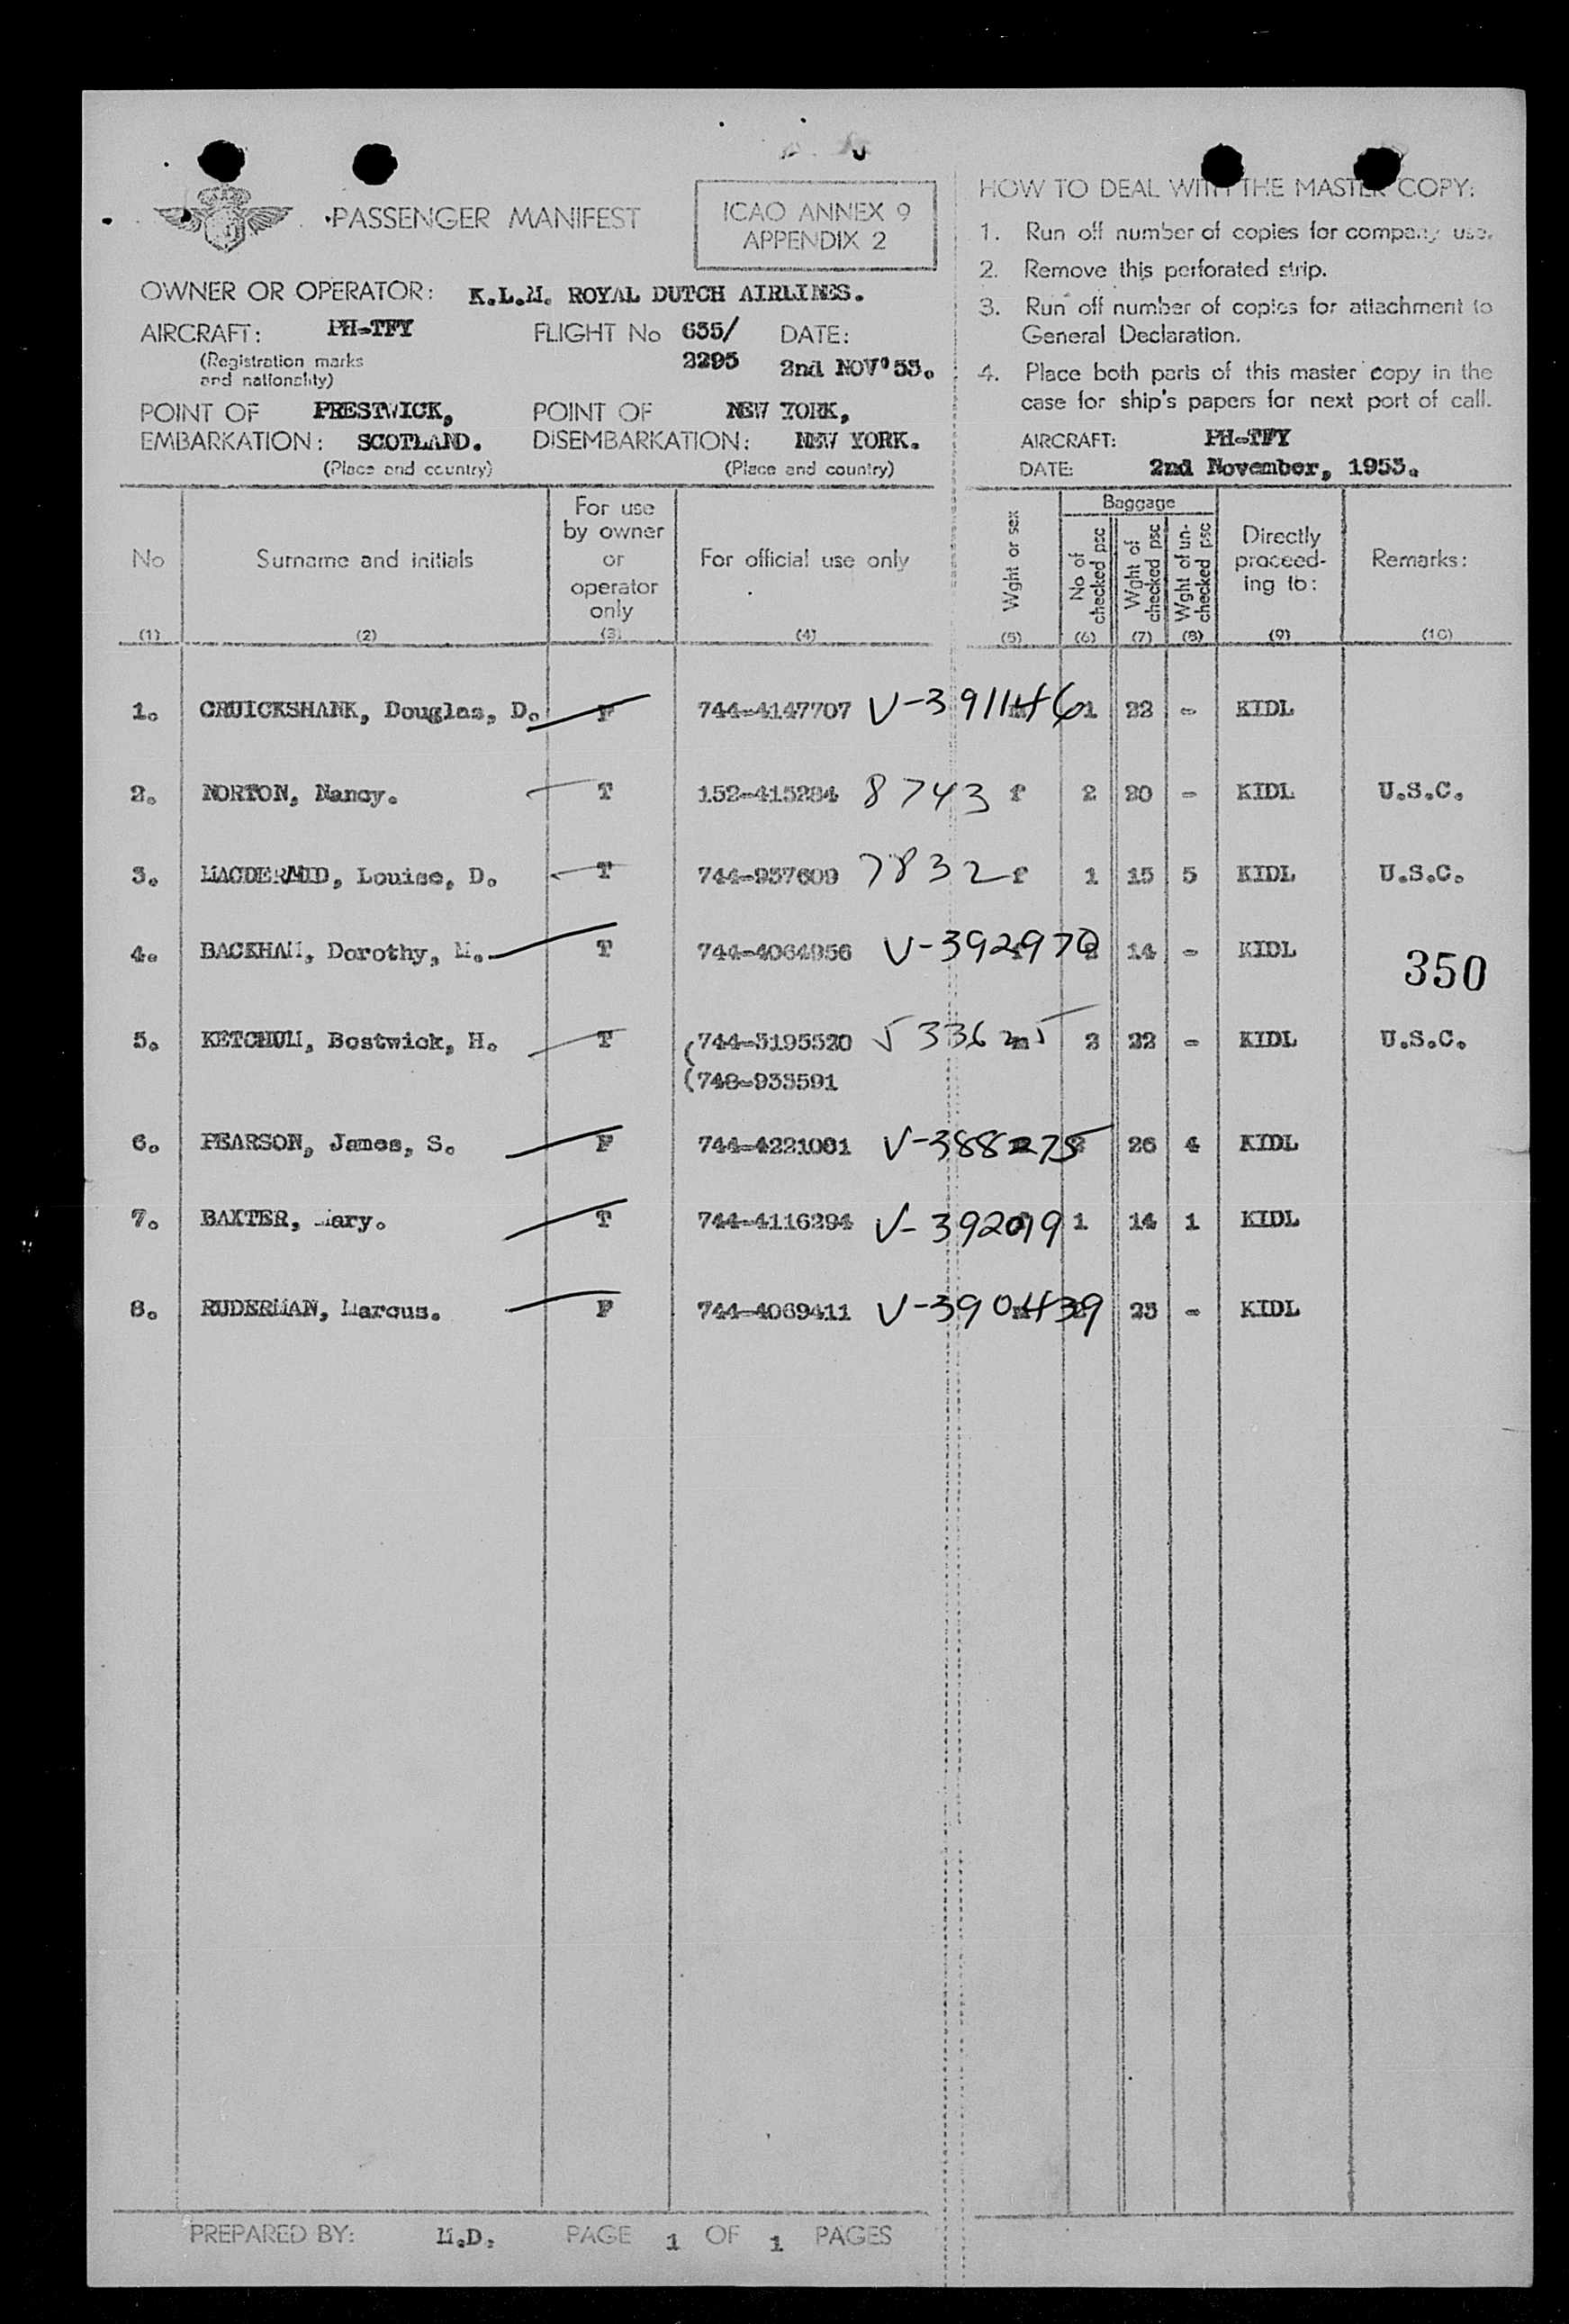 PASSENGER MANIFEST
ICAO ANNEX 9
APPENDIX 2
OWNER OR OPERATOR: K.L.M. ROYAL DUTCH AIRLINES.
AIRCRAFT: PH-TFY FLIGHT No 635/ DATE:
(Registration marks 2295 2nd NOV'53.
and nationality)
POINT OF PRESTWICK, POINT OF NEW YORK,
EMBARKATION: SCOTLAND. DISEMBARKATION: NEW YORK.
(Place and country) (Place and country)
HOW TO DEAL WITH THE MASTER COPY:
1. Run off number of copies for company use.
2. Remove this perforated strip.
3. Run off number of copies for attachment to
General Declaration.
4. Place both parts of this master copy in the
case for ship's papers for next port of call.
AIRCRAFT: PH-TFY
DATE: 2nd November, 1953.
No
Surname and initials
For use
by owner
or
operator
only
For official use only
Wght or sex
Baggage
No of
checked psc
Wght of
checked psc
Wght of un-
checked psc
Directly
proceed-
ing to:
Remarks:
(1) (2) (3) (4) (5) (6) (7) (8) (9) (10)
1. CRUICKSHANK, Douglas, D. F 744-4147707 V-391146 1 22 - KIDL
2. NORTON, Nancy. T 152-415284 8743 f 2 20 - KIDL U.S.C.
3. MACDERMID, Louise, D. T 744-937609 7832 f 1 15 5 KIDL U.S.C.
4. BACKHAM, Dorothy, M. T 744-4064956 V-392970 14 - KIDL
350
5. KETCHUM, Bostwick, H. T (744-3195520 m 2 22 - KIDL U.S.C.
(748-933591
6. PEARSON, James, S. F 744-4221001 V-388275 26 4 KIDL
7. BAXTER, Mary. T 744-4116294 V-392019 1 14 1 KIDL
8. RUDERMAN, Marcus. F 744-4069411 V-390439 23 - KIDL
PREPARED BY: M.D. PAGE 1 OF 1 PAGES